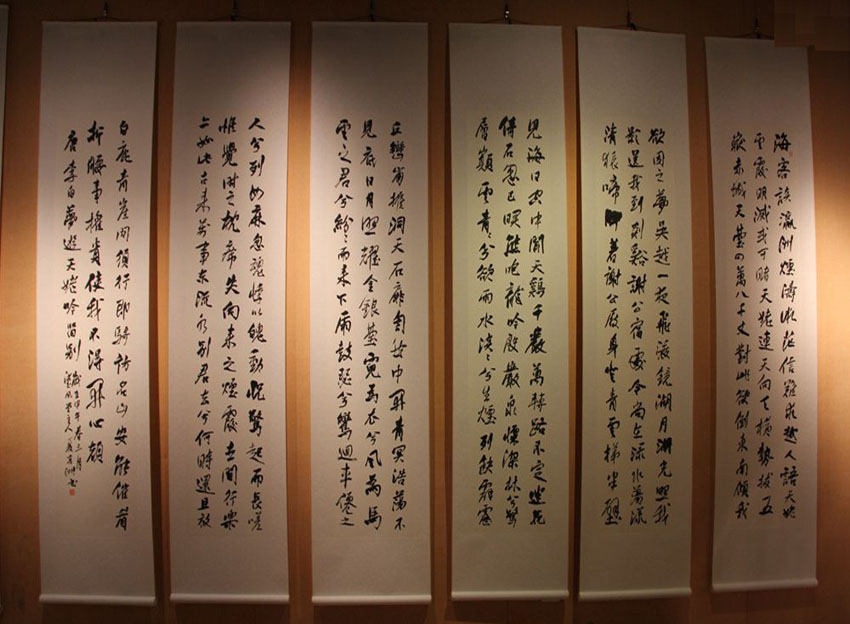 海客談瀛洲煙濤微茫信難求越人語天姥
雲霞明滅或可睹天姥連天向天橫勢拔五
嶽赤城天臺四萬八千丈對此欲倒東南傾我
欲因之夢吳越一夜飛渡鏡湖月湖光照我
影送我到剡谿謝公宿處今尚在淥水蕩漾
清猿啼腳著謝公屐身登青雲梯半壁
見海日空中聞天鷄千巖萬轉路不定迷花
倚石忽已暝熊咆龍吟殷巖泉慄深林兮驚
層巔雲青青兮欲雨水澹澹兮生煙列缺霹靂
丘巒崩摧洞天石扉訇然中開青冥浩蕩不
見底日月照耀金銀臺霓為衣兮風為馬
雲之君兮紛紛而來下虎鼓瑟兮鸞迴車僊之
人兮列如麻忽魂悸以魄動怳驚起而長嗟
惟覺時之枕席失向來之煙霞世間行樂
亦如此古來萬事東流水別君去兮何時還且放
白鹿青崖間須行即騎訪名山安能摧眉
折腰事權貴使我不得開心顏
唐李白夢遊天姥吟留別
歲在甲午春三月